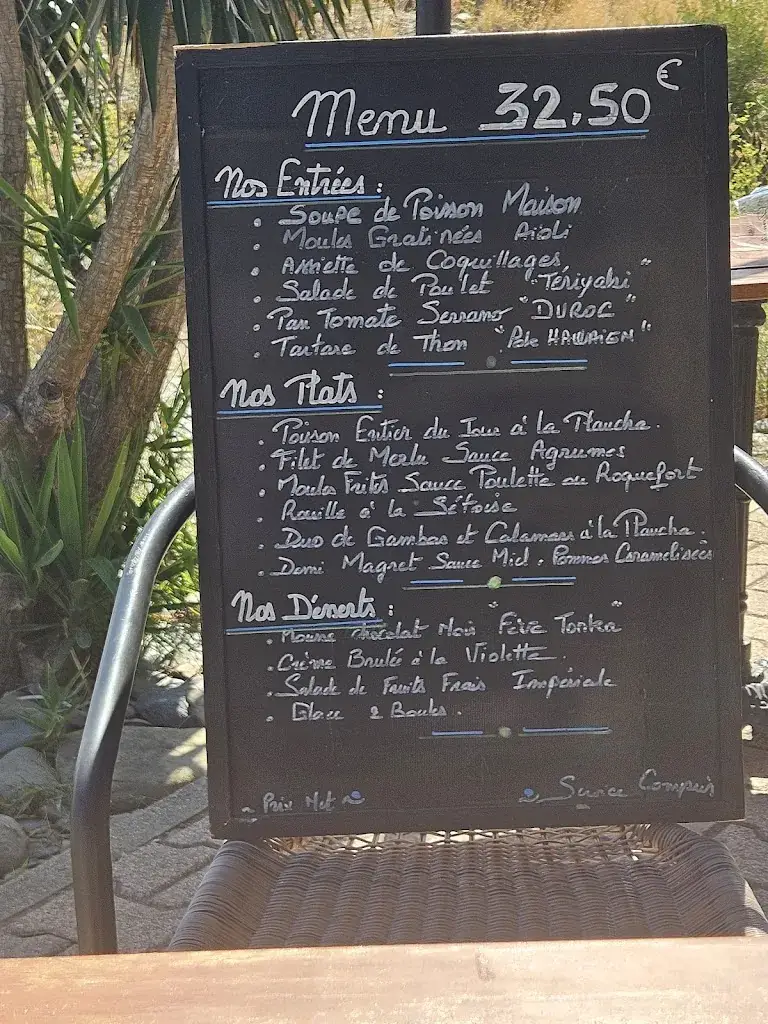 Menu 32,50€
Nos Entrées :
. Soupe de Poisson Maison
. Moules Gratinées Aïoli
. Assiette de Coquillages
. Salade de Poulet "Tériyaki"
. Pan Tomate Serrano "DUROC"
. Tartare de Thon "Poke HAWAIEN"
Nos Plats :
. Poisson Entier du Jour à la Plancha.
. Filet de Merlu Sauce Agrumes
. Moules Frites Sauce Poulette ou Roquefort
. Rouille à la Sétoise
. Duo de Gambas et Calamars à la Plancha.
. Demi Magret Sauce Miel. Pommes Caramelisées
Nos Desserts :
. Mousse Chocolat Noir "Fève Tonka"
. Crème Brulée à la Violette.
. Salade de Fruits Frais Impériale
. Glace 2 Boules.
~ Prix Net ~
~ Service Compris